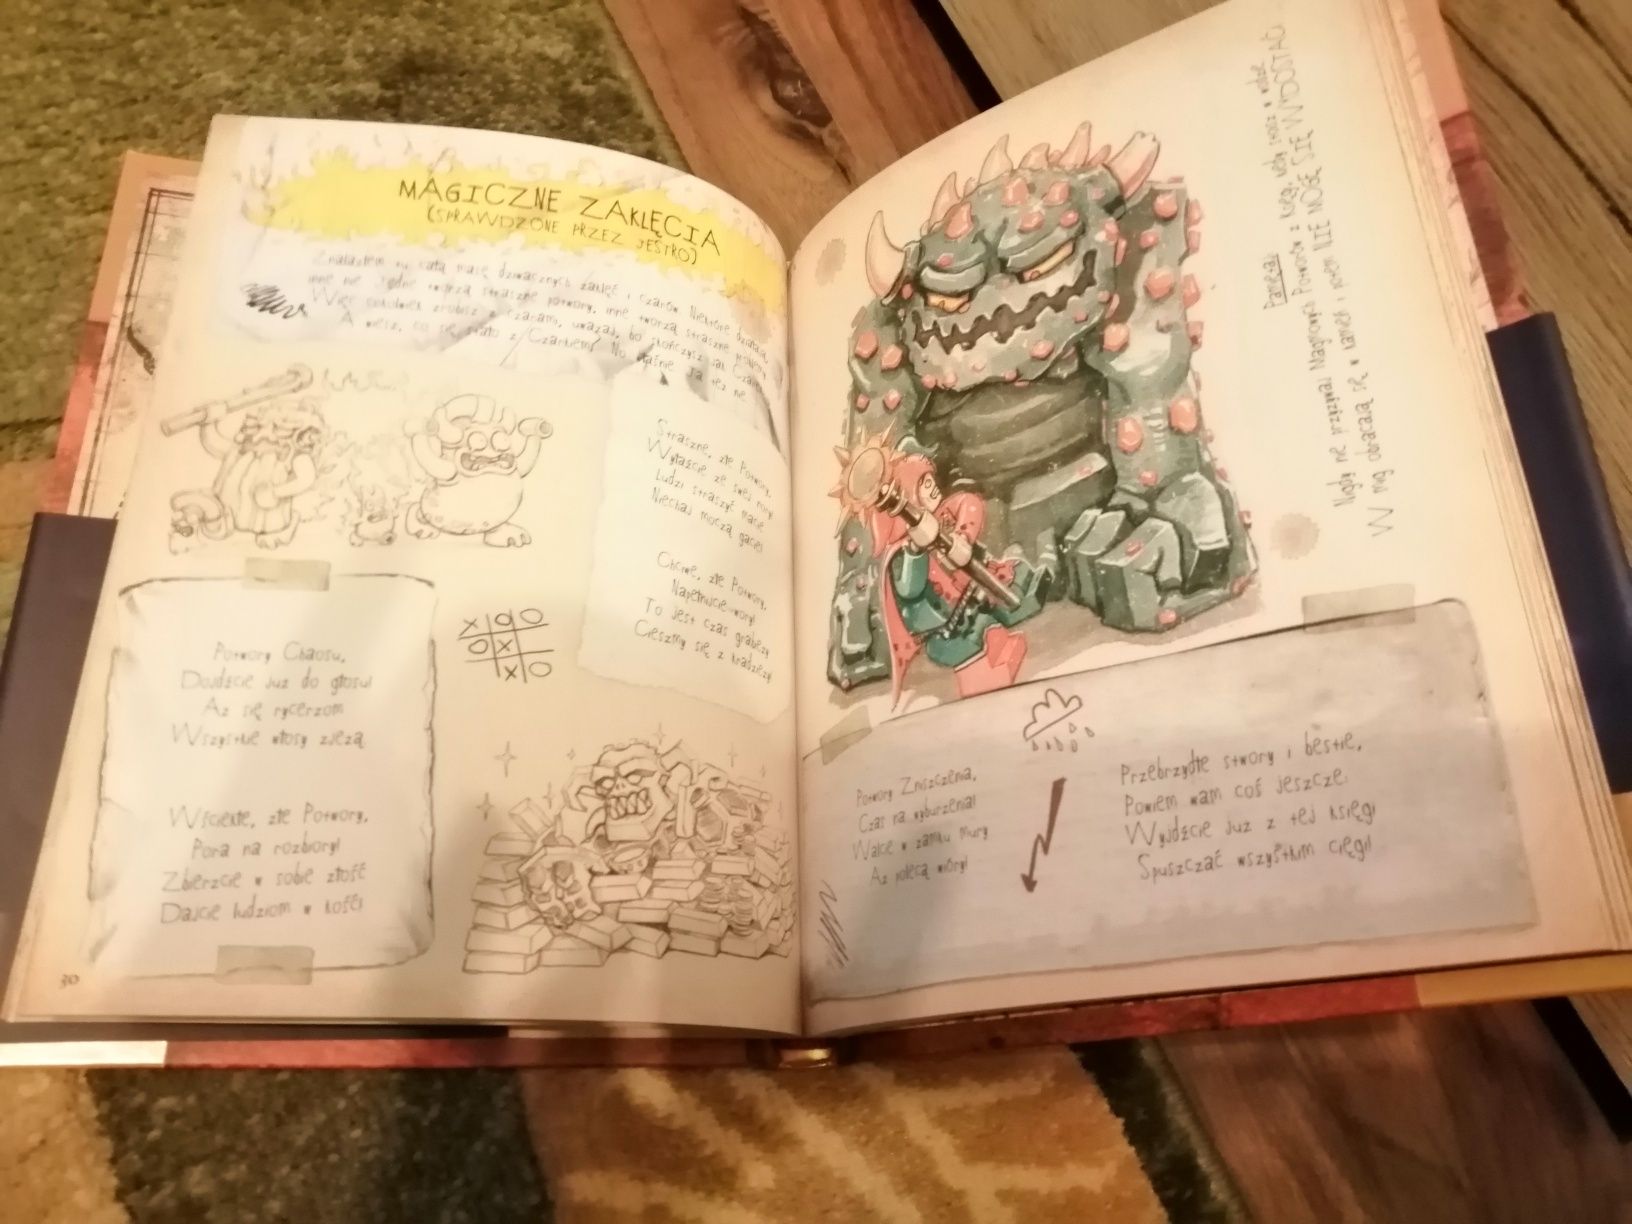 MAGICZNE ZAKLĘCIA
(SPRAWDZONE PRZEZ JESTRO)
Znalazłem tu całą masę dziwacznych zaklęć i czarów. Niektóre działają,
inne nie. Jedne tworzą straszne potwory, inne tworzą straszne problemy.
Więc cokolwiek zrobisz z czarami, uważaj, bo skończysz jak
A wiesz, co się stało z Czarkiem? No właśnie ja też nie.
Straszne, złe Potwory,
Wyłaźcie ze swej nory!
Ludzi straszyć macie,
Niechaj moczą gacie!
Chciwe, złe Potwory,
Napełnijcie wory!
To jest czas grabieży
Cieszmy się z kradzieży!
Potwory Chaosu,
Dojdźcie już do głosu!
Aż się rycerzom
Wszystkie włosy zjeżą
Wściekłe, złe Potwory,
Pora na rozbiory!
Zbierzcie w sobie złość
Dajcie ludziom w kość!
X O O
O X
X O
30
Pamiętaj
Nigdy nie przyzywaj Magicznych Potworów z Księgi, kiedy stoisz w wodzie.
W mig obracają się w kamień i potem NIE MOGĘ SIĘ WYDOSTAĆ
Potwory Zniszczenia,
Czas na wyburzenia!
Walcie w zamku mury
Aż polecą wióry!
Przebrzydłe stwory i bestie,
Powiem wam coś jeszcze:
Wyjdźcie już z tej księgi
Spuszczać wszystkim cięgi!